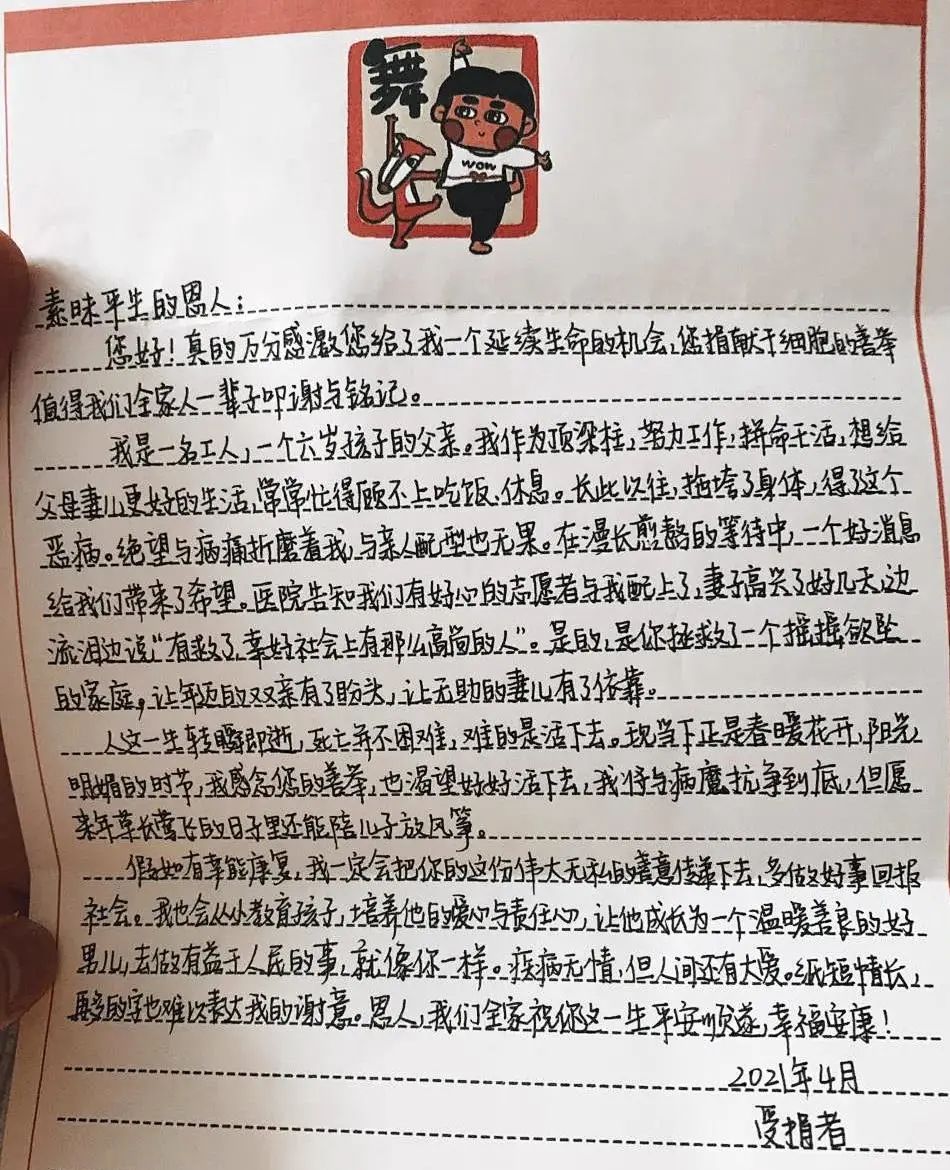 舞
wow
素昧平生的恩人:
您好!真的万分感激您给了我一个延续生命的机会,您捐献干细胞的善举
值得我们全家人一辈子叩谢与铭记。
我是一名工人,一个六岁孩子的父亲。我作为顶梁柱,努力工作,拼命干活,想给
父母妻儿更好的生活,常常忙得顾不上吃饭、休息。长此以往,拖垮了身体,得了这个
恶病。绝望与病痛折磨着我,与亲人配型也无果。在漫长煎熬的等待中,一个好消息
给我们带来了希望。医院告知我们有好心的志愿者与我配上了,妻子高兴了好几天,边
流泪边说“有救了,幸好社会上有那么高尚的人”。是的,是你拯救了一个摇摇欲坠
的家庭,让年迈的双亲有了盼头,让无助的妻儿有了依靠。
人这一生转瞬即逝,死亡并不困难,难的是活下去。现当下正是春暖花开,阳光
明媚的时节,我感念您的善举,也渴望好好活下去,我将与病魔抗争到底,但愿
来年草长莺飞的日子里还能陪儿子放风筝。
假如有幸能康复,我一定会把你的这份伟大无私的善意传递下去,多做好事回报
社会。我也会从小教育孩子,培养他的爱心与责任心,让他成长为一个温暖善良的好
男儿,去做有益于人民的事,就像你一样。疾病无情,但人间还有大爱。纸短情长,
再多的字也难以表达我的谢意。恩人,我们全家祝你这一生平安顺遂,幸福安康!
2021年4月
受捐者